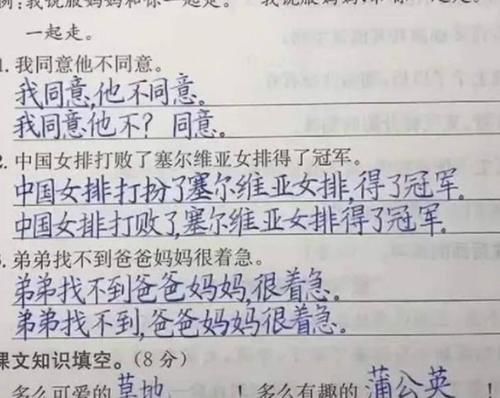 例:我说服妈妈和你一起走。 我说服妈妈:和你一起走。
一起走。
1.我同意他不同意。
我同意,他不同意。
我同意他不?同意。
2.中国女排打败了塞尔维亚女排得了冠军。
中国女排打扮了塞尔维亚女排,得了冠军.
中国女排打败了,塞尔维亚女排得了冠军.
3.弟弟找不到爸爸妈妈很着急。
弟弟找不到爸爸妈妈,很着急。
弟弟找不到,爸爸妈妈很着急.
课文知识填空。(8分)
多么可爱的草地 ! 多么有趣的 蒲公英 !